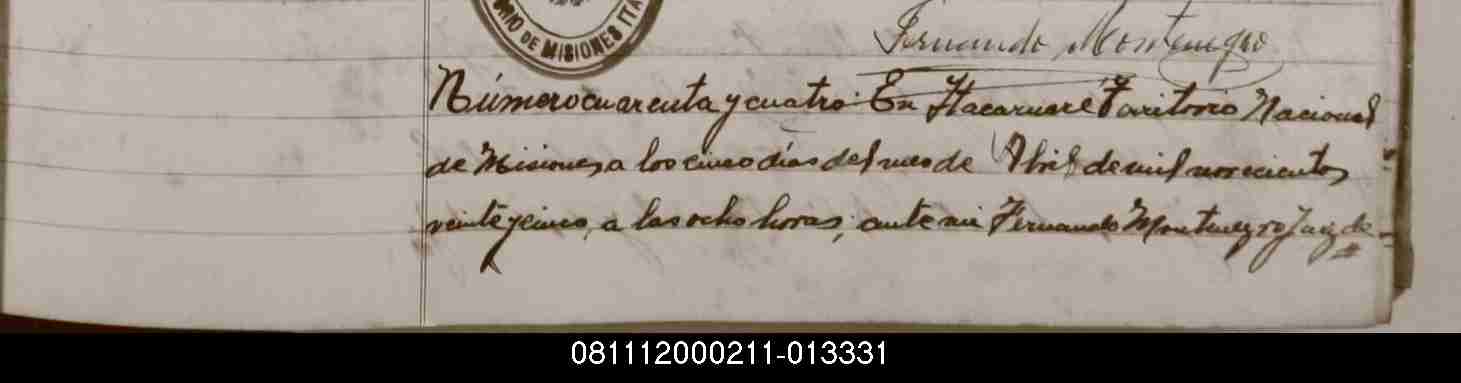 ORIO DE MISIONES ITA
Fernando Montenegro
Número cuarenta y cuatro. En Itacaruaré Territorio Nacional
de Misiones, a los cinco días del mes de Abril de mil novecientos
veinte y cinco, a las ocho horas; ante mi Fernando Montenegro Juez de
081112000211-013331